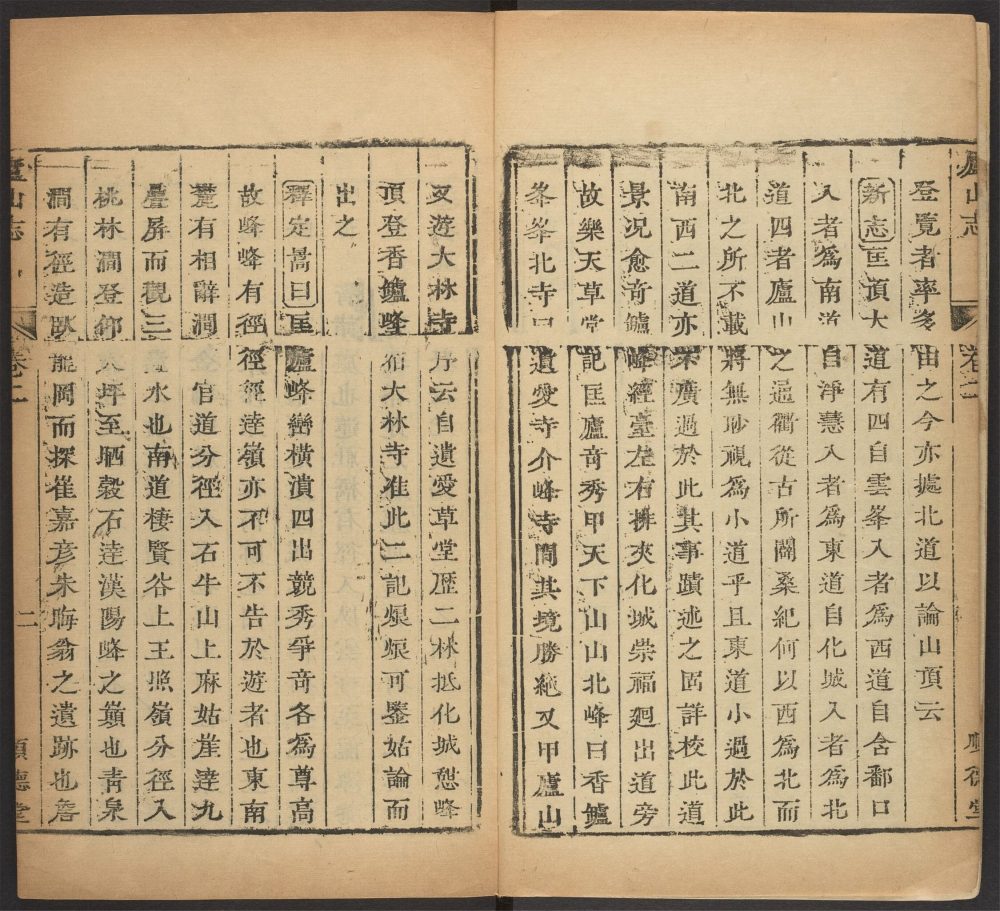 廬山志 卷二 順德堂
登覽者率多由之今亦據北道以論山頂云
新志匡頂大道有四自雲峯入者爲西道自含鄱口
入者爲南道自淨慧入者爲東道自化城入者爲北
道四者廬山之通衢從古所闢桑紀何以西爲北而
北之所不載將無眇視爲小道乎且東道小過於此
南西二道亦未廣過於此其事蹟述之固詳校此道
景況愈奇鱸峰經臺左右排夾化城崇福廻出道旁
故樂天草堂記匡廬奇秀甲天下山山北峰曰香鱸
峯峯北寺曰遺愛寺介峰寺間其境勝絶又甲廬山
又遊大林寺序云自遺愛草堂歴二林抵化城憇峰
頂登香鑪峰宿大林寺准此二記焜焜可鑒姑論而
出之
釋定暠曰匡廬峰巒橫潰四出競秀爭奇各爲尊高
故峰峰有徑徑經逹嶺亦不可不告於遊者也東南
麓有相辭澗官道分徑入石牛山上麻姑崖逹九
疊屏而觀三 水也南道棲賢谷上王照嶺分徑入
桃林澗登仰 坪至晒穀石逹漢陽峰之巔也靑泉
澗有徑造臥龍岡而探崔嘉彥朱晦翁之遺跡也詹
廬山志 卷二 二 順德堂